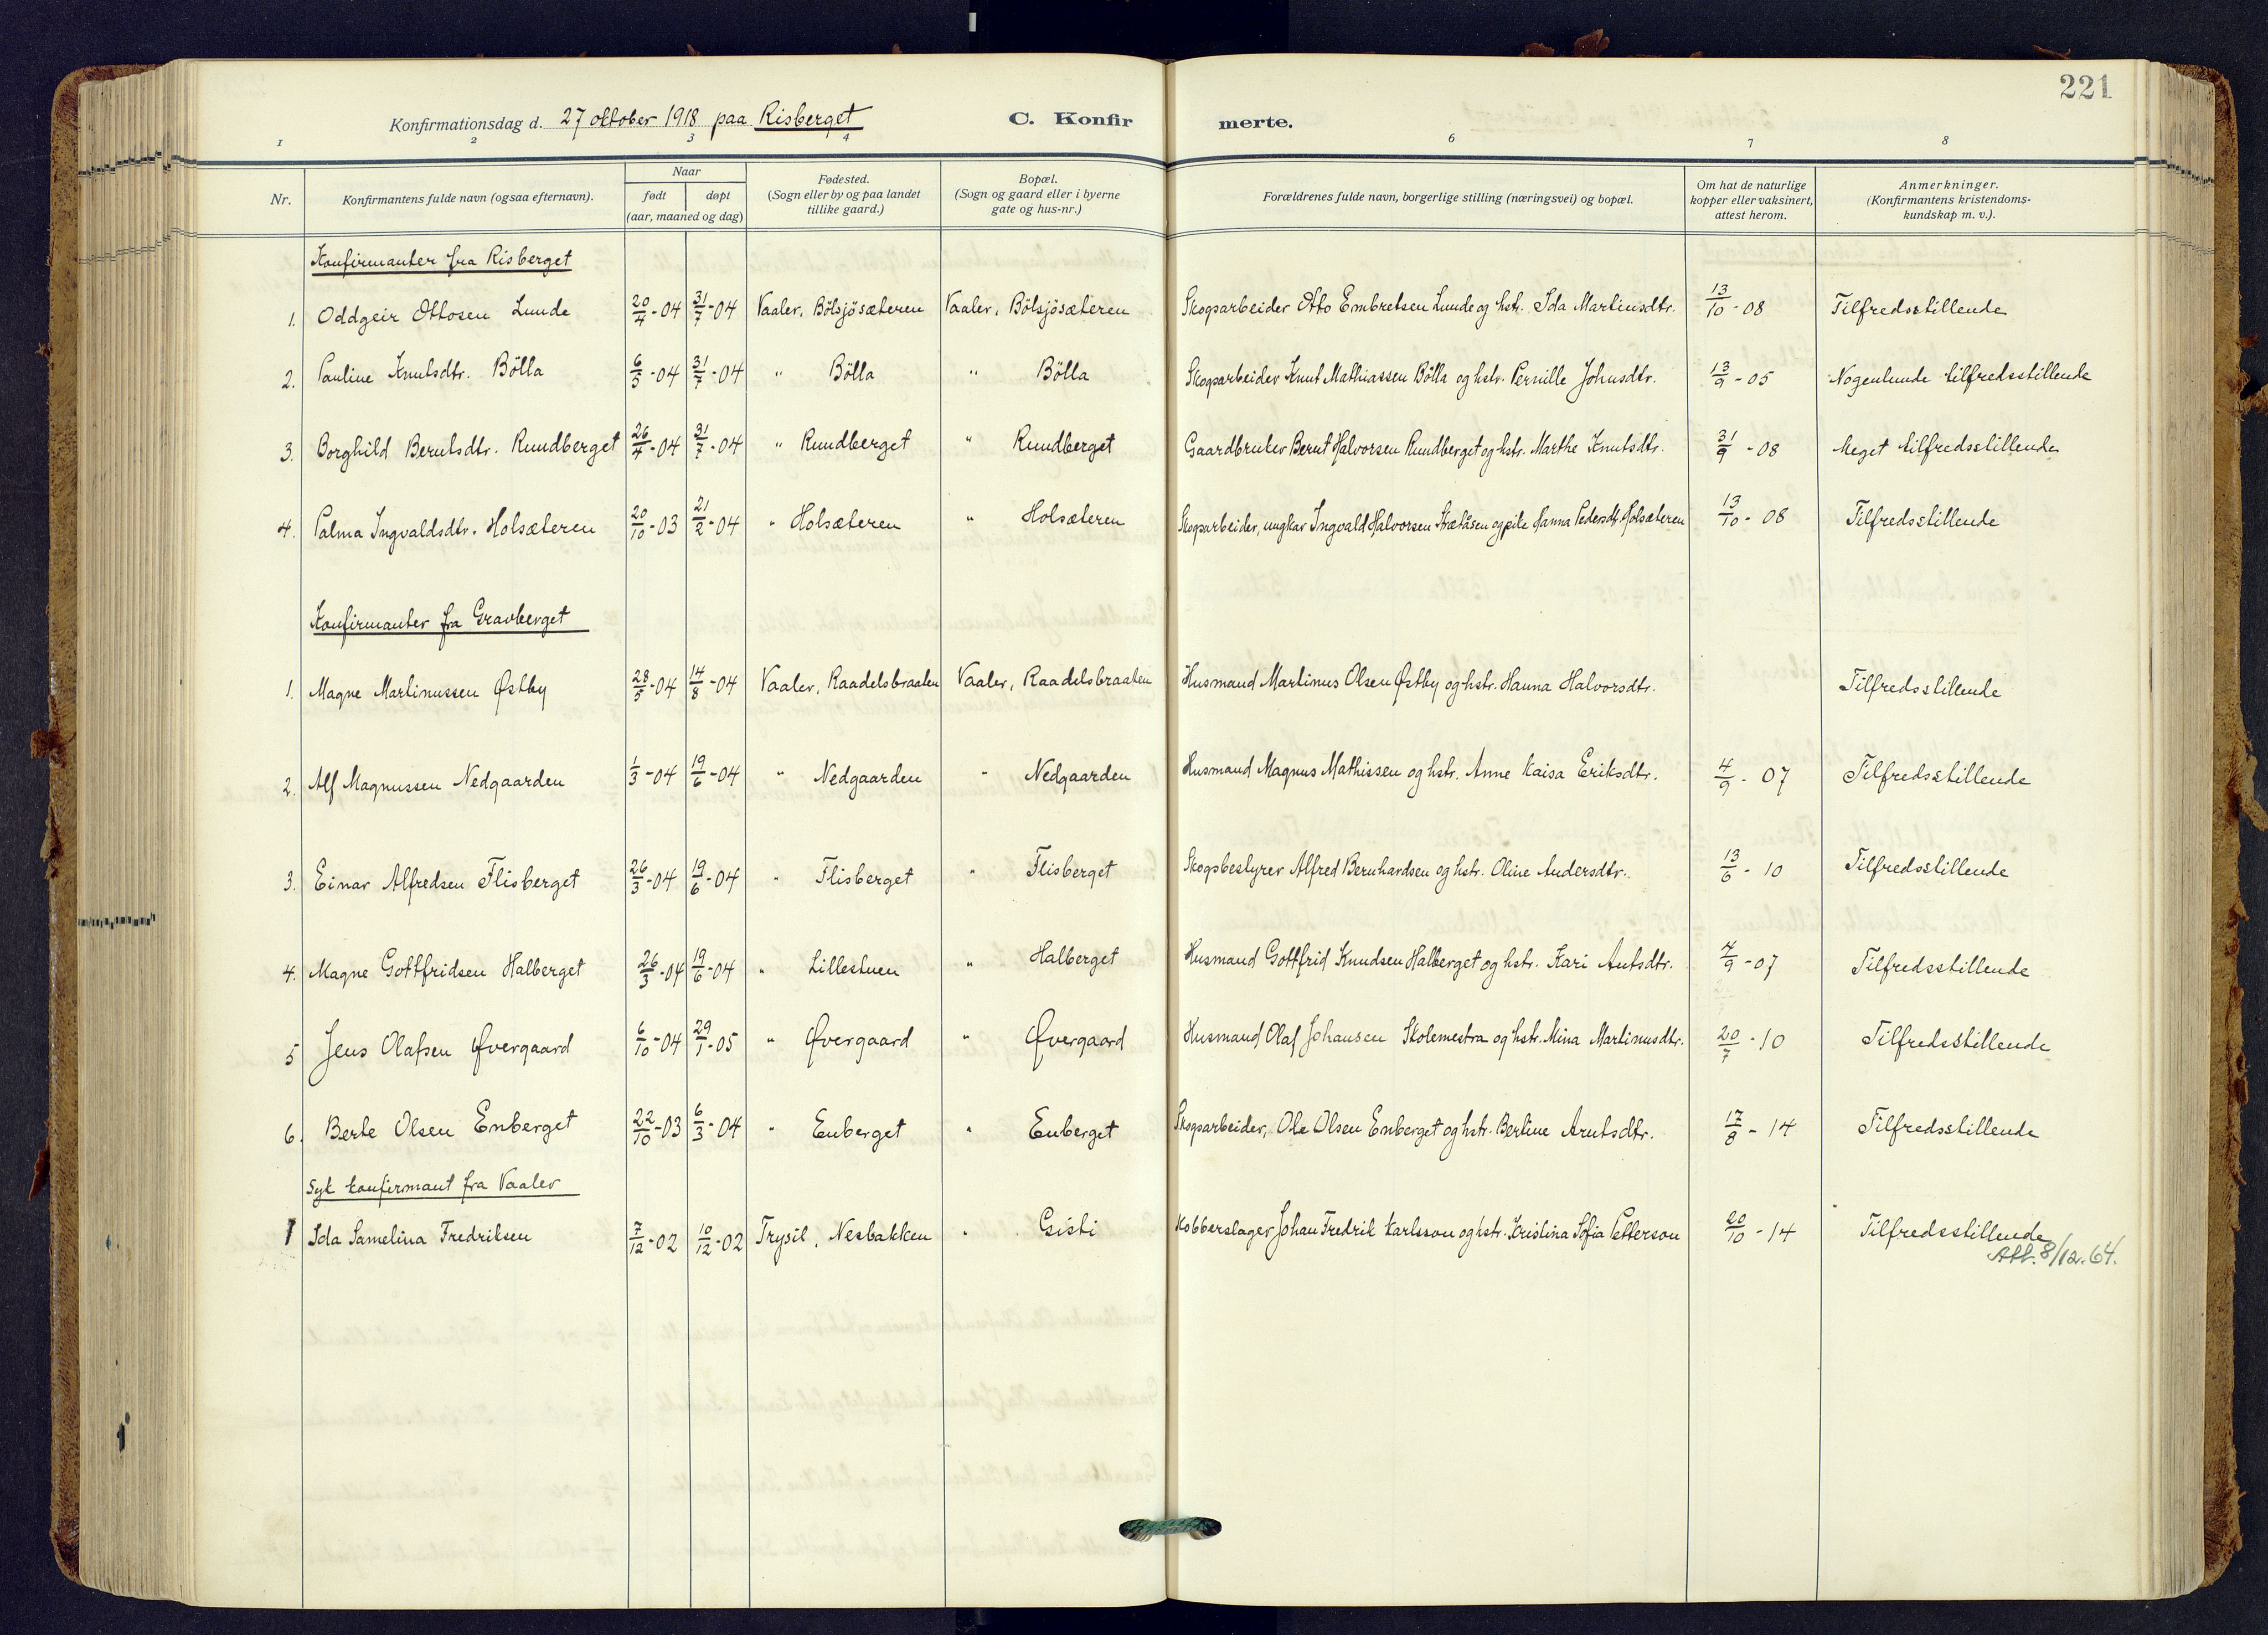 221
Konfirmationsdag d. 27 oktober 1918 paa Risberget C. Konfirmerte.
1 2 3 4 6 7 8
Nr. Konfirmantens fulde navn (ogsaa efternavn). Naar født døpt (aar, maaned og dag) Fødested. (Sogn eller by og paa landet tillike gaard.) Bopæl. (Sogn og gaard eller i byerne gate og hus-nr.) Forældrenes fulde navn, borgerlige stilling (næringsvei) og bopæl. Om hat de naturlige kopper eller vaksinert, attest herom. Anmerkninger. (Konfirmantens kristendomskundskap m. v.).
Konfirmanter fra Risberget
1. Oddgeir Ottosen Lunde 20/4-04 31/7-04 Vaaler, Bölsjösæteren Vaaler, Bölsjösæteren Skogsarbeider Otto Embretsen Lunde og hstr. Ida Martinsdtr. 13/10-08 Tilfredsstillende
2. Pauline Knutsdtr. Bölla 6/5-04 31/7-04 " Bölla " Bölla Skogsarbeider Knut Mathiassen Bölla og hstr. Pernille Johnsdtr. 13/9-05 Nogenlunde tilfredsstillende
3. Borghild Berntsdtr. Rundberget 26/4-04 31/7-04 " Rundberget " Rundberget Gaardbruker Bernt Halvorsen Rundberget og hstr. Marthe Knutsdtr. 31/9-08 Meget tilfredsstillende
4. Palma Ingvaldsdtr. Holsæteren 20/10-03 21/2-04 " Holsæteren " Holsæteren Skogsarbeider, ungkar Ingvald Halvorsen og pike Hanna Pedersdt. Holsæteren 13/10-08 Tilfredsstillende
Konfirmanter fra Gravberget
1. Magne Martinussen Østby 28/5-04 14/8-04 Vaaler, Raadelsbraaten Vaaler, Raadelsbraaten Husmand Martinus Olsen Østby og hstr. Hanna Halvorsdtr. Tilfredsstillende
2. Alf Magnussen Nedgaarden 1/3-04 19/6-04 " Nedgaarden " Nedgaarden Husmand Magnus Mathissen og hstr. Anne Kaisa Eriksdtr. 4/9-07 Tilfredsstillende
3. Einar Alfredsen Flisberget 26/3-04 19/6-04 " Flisberget " Flisberget Skogsbestyrer Alfred Bernhardsen og hstr. Oline Andersdtr. 13/6-10 Tilfredsstillende
4. Magne Gottfridsen Halberget 26/3-04 19/6-04 " Lillestuen " Halberget Husmand Gottfrid Knudsen Halberget og hstr. Kari Antsdtr. 4/9-07 Tilfredsstillende
5 Jens Olafsen Øvergaard 6/10-04 29/1-05 " Øvergaard " Øvergaard Husmand Olaf Johansen Skolemestra og hstr. Mina Martinusdtr. 20/7-10 Tilfredsstillende
6. Berte Olsen Enberget 22/10-03 6/3-04 " Enberget " Enberget Skogsarbeider, Ole Olsen Enberget og hstr. Bertine Arntsdtr. 17/8-14 Tilfredsstillende
Syk konfirmant fra Vaaler
1 Ida Samelina Fredriksen 7/12-02 10/12-02 Trysil, Nesbakken " Gisti Kobberslager Johan Fredrik Karlsson og hstr. Kristina Sofia Petterson 20/10-14 Tilfredsstillende
Att. 8/12.64.